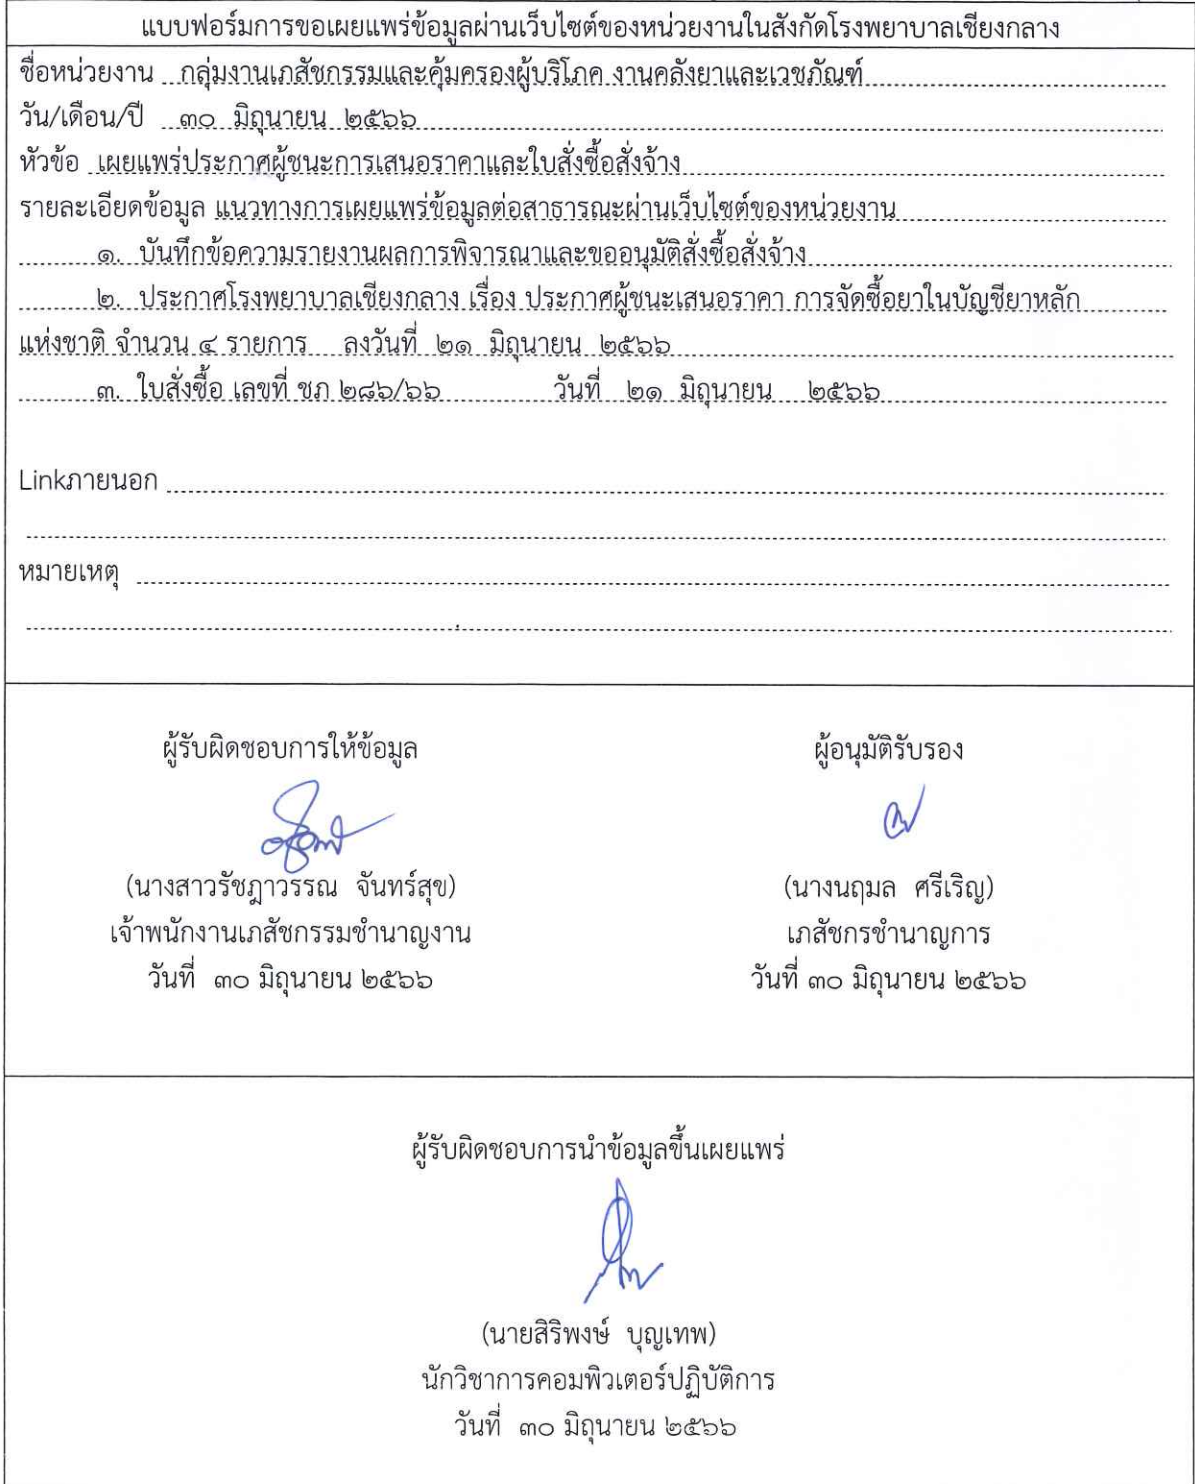 แบบฟอร์มการขอเผยแพร่ข้อมูลผ่านเว็บไซต์ของหน่วยงานในสังกัดโรงพยาบาลเชียงกลาง
ชื่อหน่วยงาน กลุ่มงานเภสัชกรรมและคุ้มครองผู้บริโภค งานคลังยาและเวชภัณฑ์
วัน/เดือน/ปี ๓๐ มิถุนายน ๒๕๖๖
หัวข้อ เผยแพร่ประกาศผู้ชนะการเสนอราคาและใบสั่งซื้อสั่งจ้าง
รายละเอียดข้อมูล แนวทางการเผยแพร่ข้อมูลต่อสาธารณะผ่านเว็บไซต์ของหน่วยงาน
๑. บันทึกข้อความรายงานผลการพิจารณาและขออนุมัติสั่งซื้อสั่งจ้าง
๒. ประกาศโรงพยาบาลเชียงกลาง เรื่อง ประกาศผู้ชนะเสนอราคา การจัดซื้อยาในบัญชียาหลัก
แห่งชาติ จำนวน ๔ รายการ ลงวันที่ ๒๑ มิถุนายน ๒๕๖๖
๓. ใบสั่งซื้อ เลขที่ ชภ ๒๘๖/๖๖ วันที่ ๒๑ มิถุนายน ๒๕๖๖
Linkภายนอก
หมายเหตุ
ผู้รับผิดชอบการให้ข้อมูล ผู้อนุมัติรับรอง
(นางสาวรัชฎาวรรณ จันทร์สุข) (นางนฤมล ศรีเริญ)
เจ้าพนักงานเภสัชกรรมชำนาญงาน เภสัชกรชำนาญการ
วันที่ ๓๐ มิถุนายน ๒๕๖๖ วันที่ ๓๐ มิถุนายน ๒๕๖๖
ผู้รับผิดชอบการนำข้อมูลขึ้นเผยแพร่
(นายสิริพงษ์ บุญเทพ)
นักวิชาการคอมพิวเตอร์ปฏิบัติการ
วันที่ ๓๐ มิถุนายน ๒๕๖๖